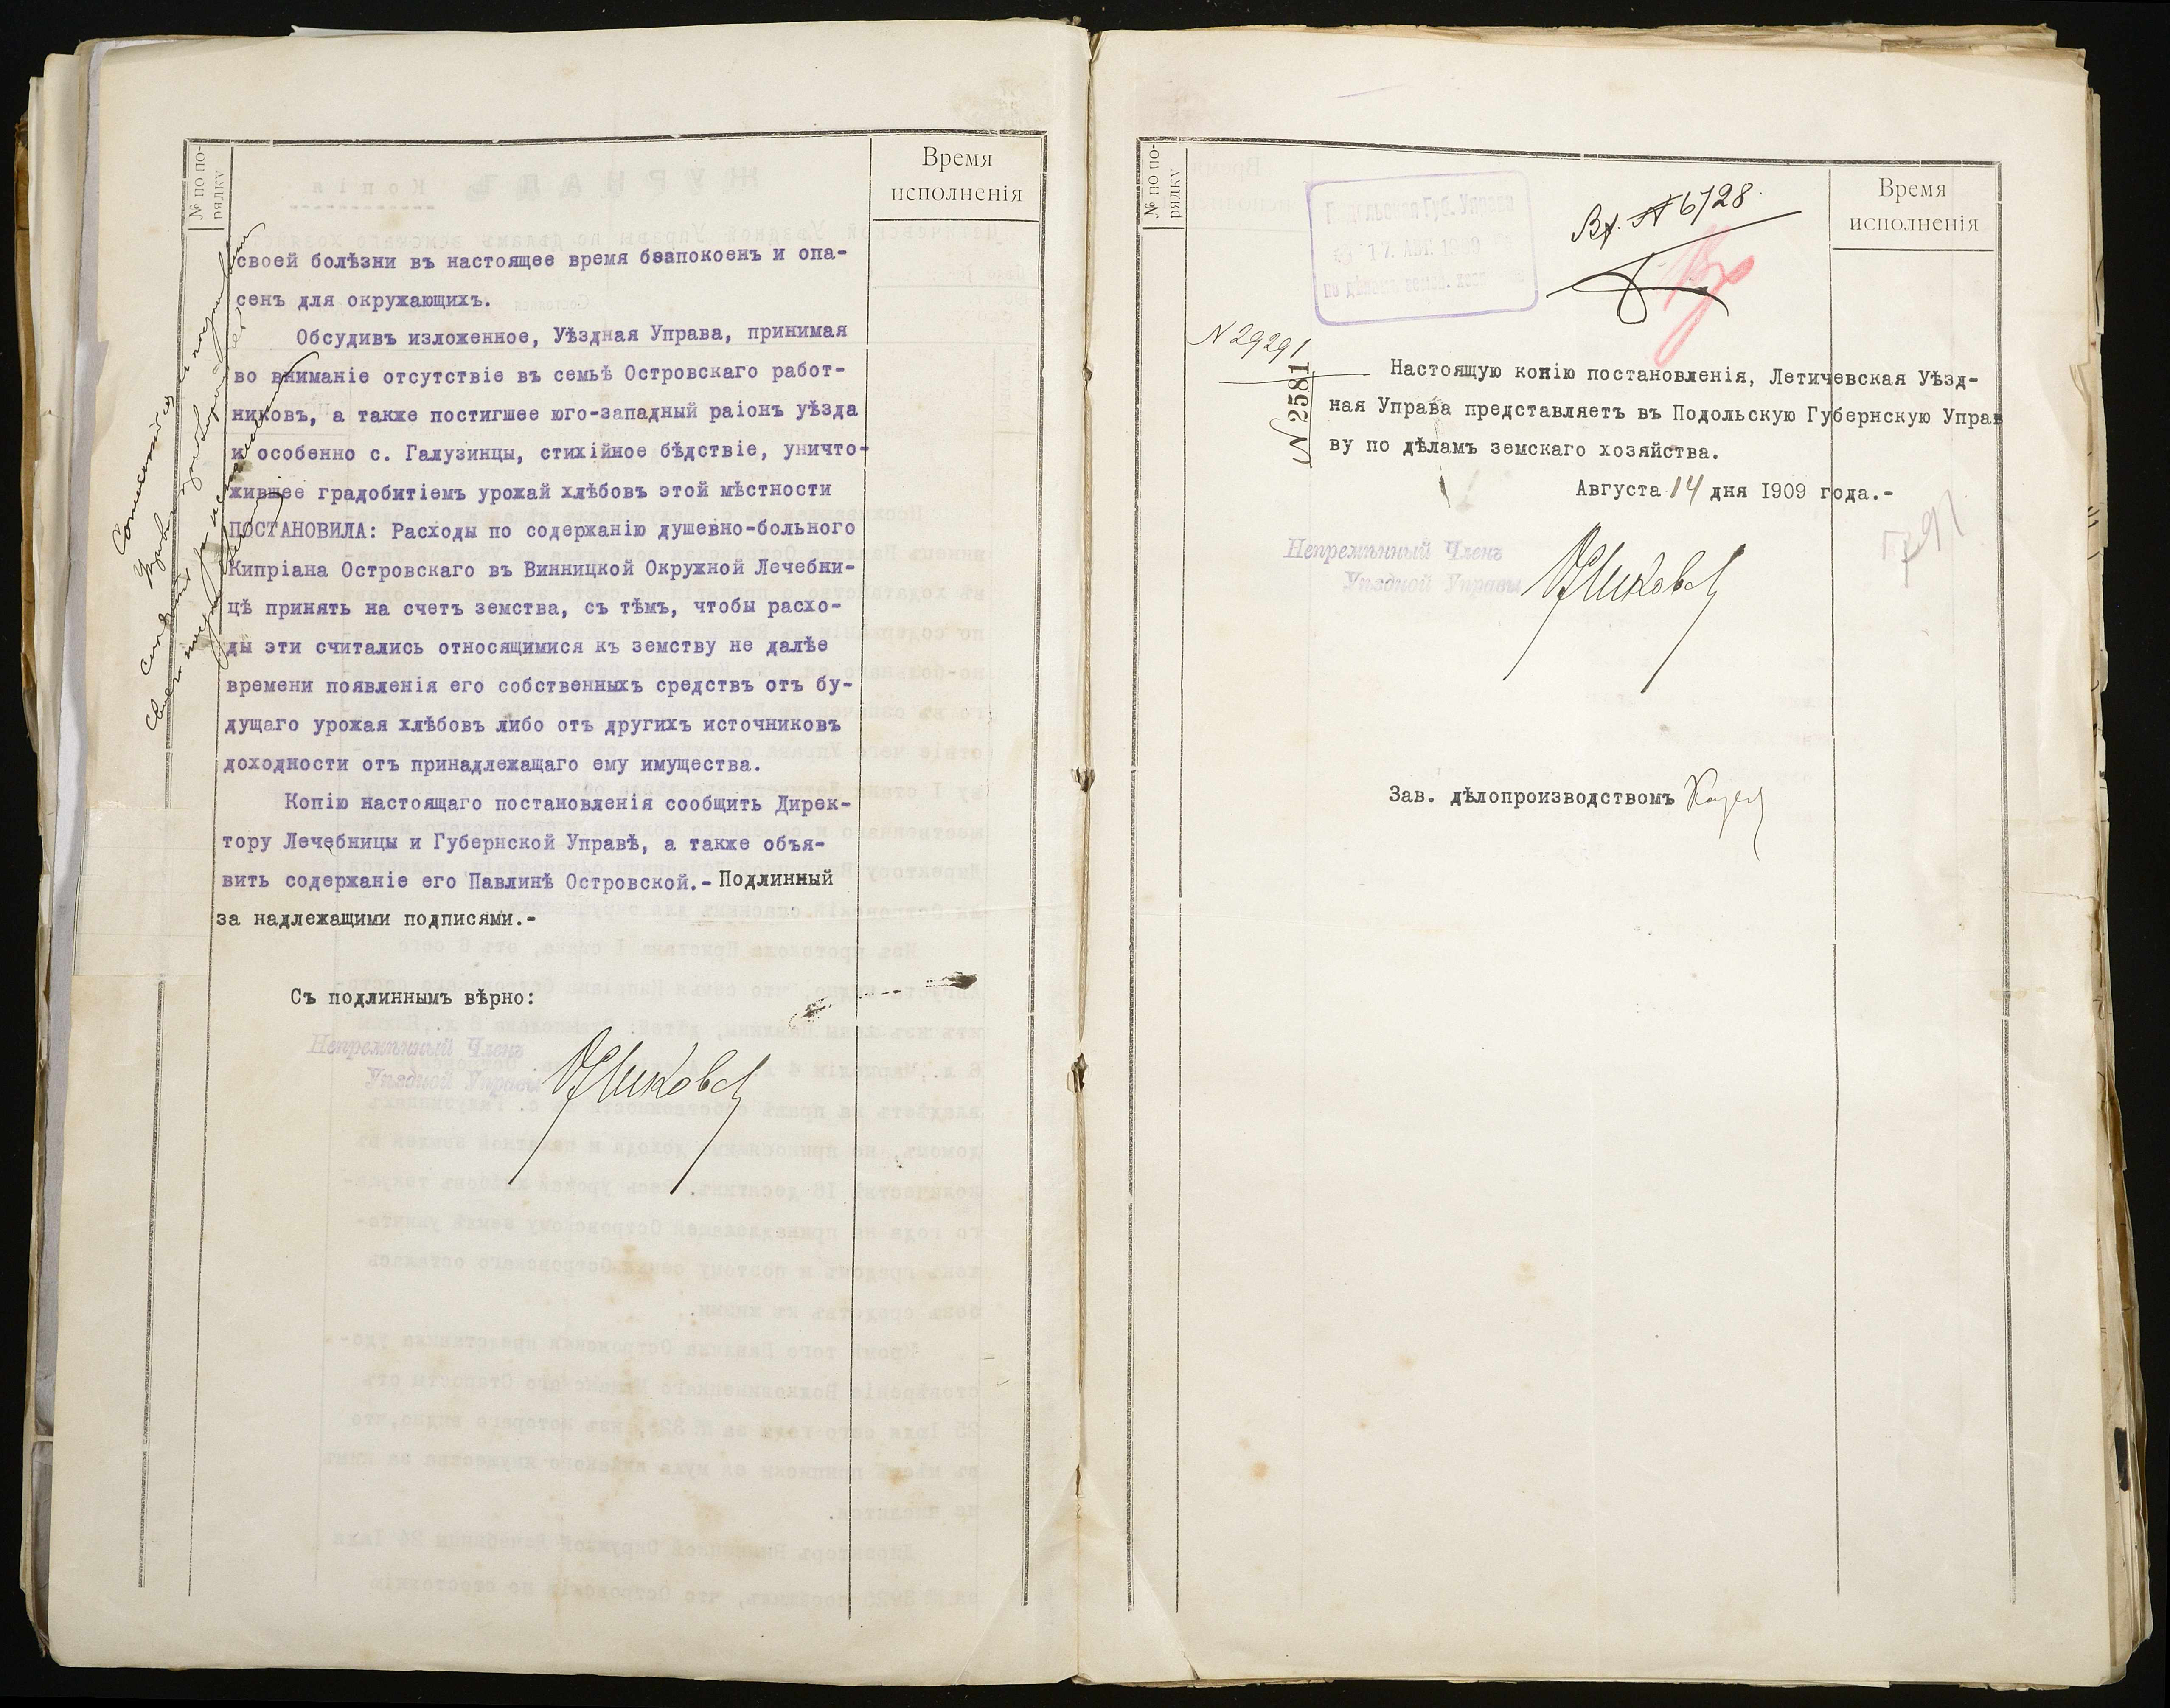 № по по-
рядку
Время
исполненія
своей болѣзни въ настоящее время безпокоенъ и опа-
сенъ для окружающихъ.
Обсудивъ изложенное, Уѣздная Управа, принимая
во вниманіе отсутствіе въ семьѣ Островскаго работ-
никовъ, а также постигшее юго-западный раіонъ уѣзда
и особенно с. Галузинцы, стихійное бѣдствіе, уничто-
жившее градобитіемъ урожай хлѣбовъ этой мѣстности
ПОСТАНОВИЛА: Расходы по содержанію душевно-больного
Кипріана Островскаго въ Винницкой Окружной Лечебни-
цѣ принять на счетъ земства, съ тѣмъ, чтобы расхо-
ды эти считались относящимися къ земству не далѣе
времени появленія его собственныхъ средствъ отъ бу-
дущаго урожая хлѣбовъ либо отъ другихъ источниковъ
доходности отъ принадлежащаго ему имущества.
Копію настоящаго постановленія сообщить Дирек-
тору Лечебницы и Губернской Управѣ, а также объя-
вить содержаніе его Павлинѣ Островской.- Подлинный
за надлежащими подписями.-
Съ подлиннымъ вѣрно:
Непремѣнный Членъ
Уѣздной Управы
№ по по-
рядку
Время
исполненія
Подольская Губ. Управа
17 АВГ. 1909
по дѣламъ земск. хоз.
Вх. № 6728.
N 29291
№ 2581
Настоящую копію постановленія, Летичевская Уѣзд-
ная Управа представляетъ въ Подольскую Губернскую Упра
ву по дѣламъ земскаго хозяйства.
Августа 14 дня 1909 года.-
Непремѣнный Членъ
Уѣздной Управы
Зав. дѣлопроизводствомъ